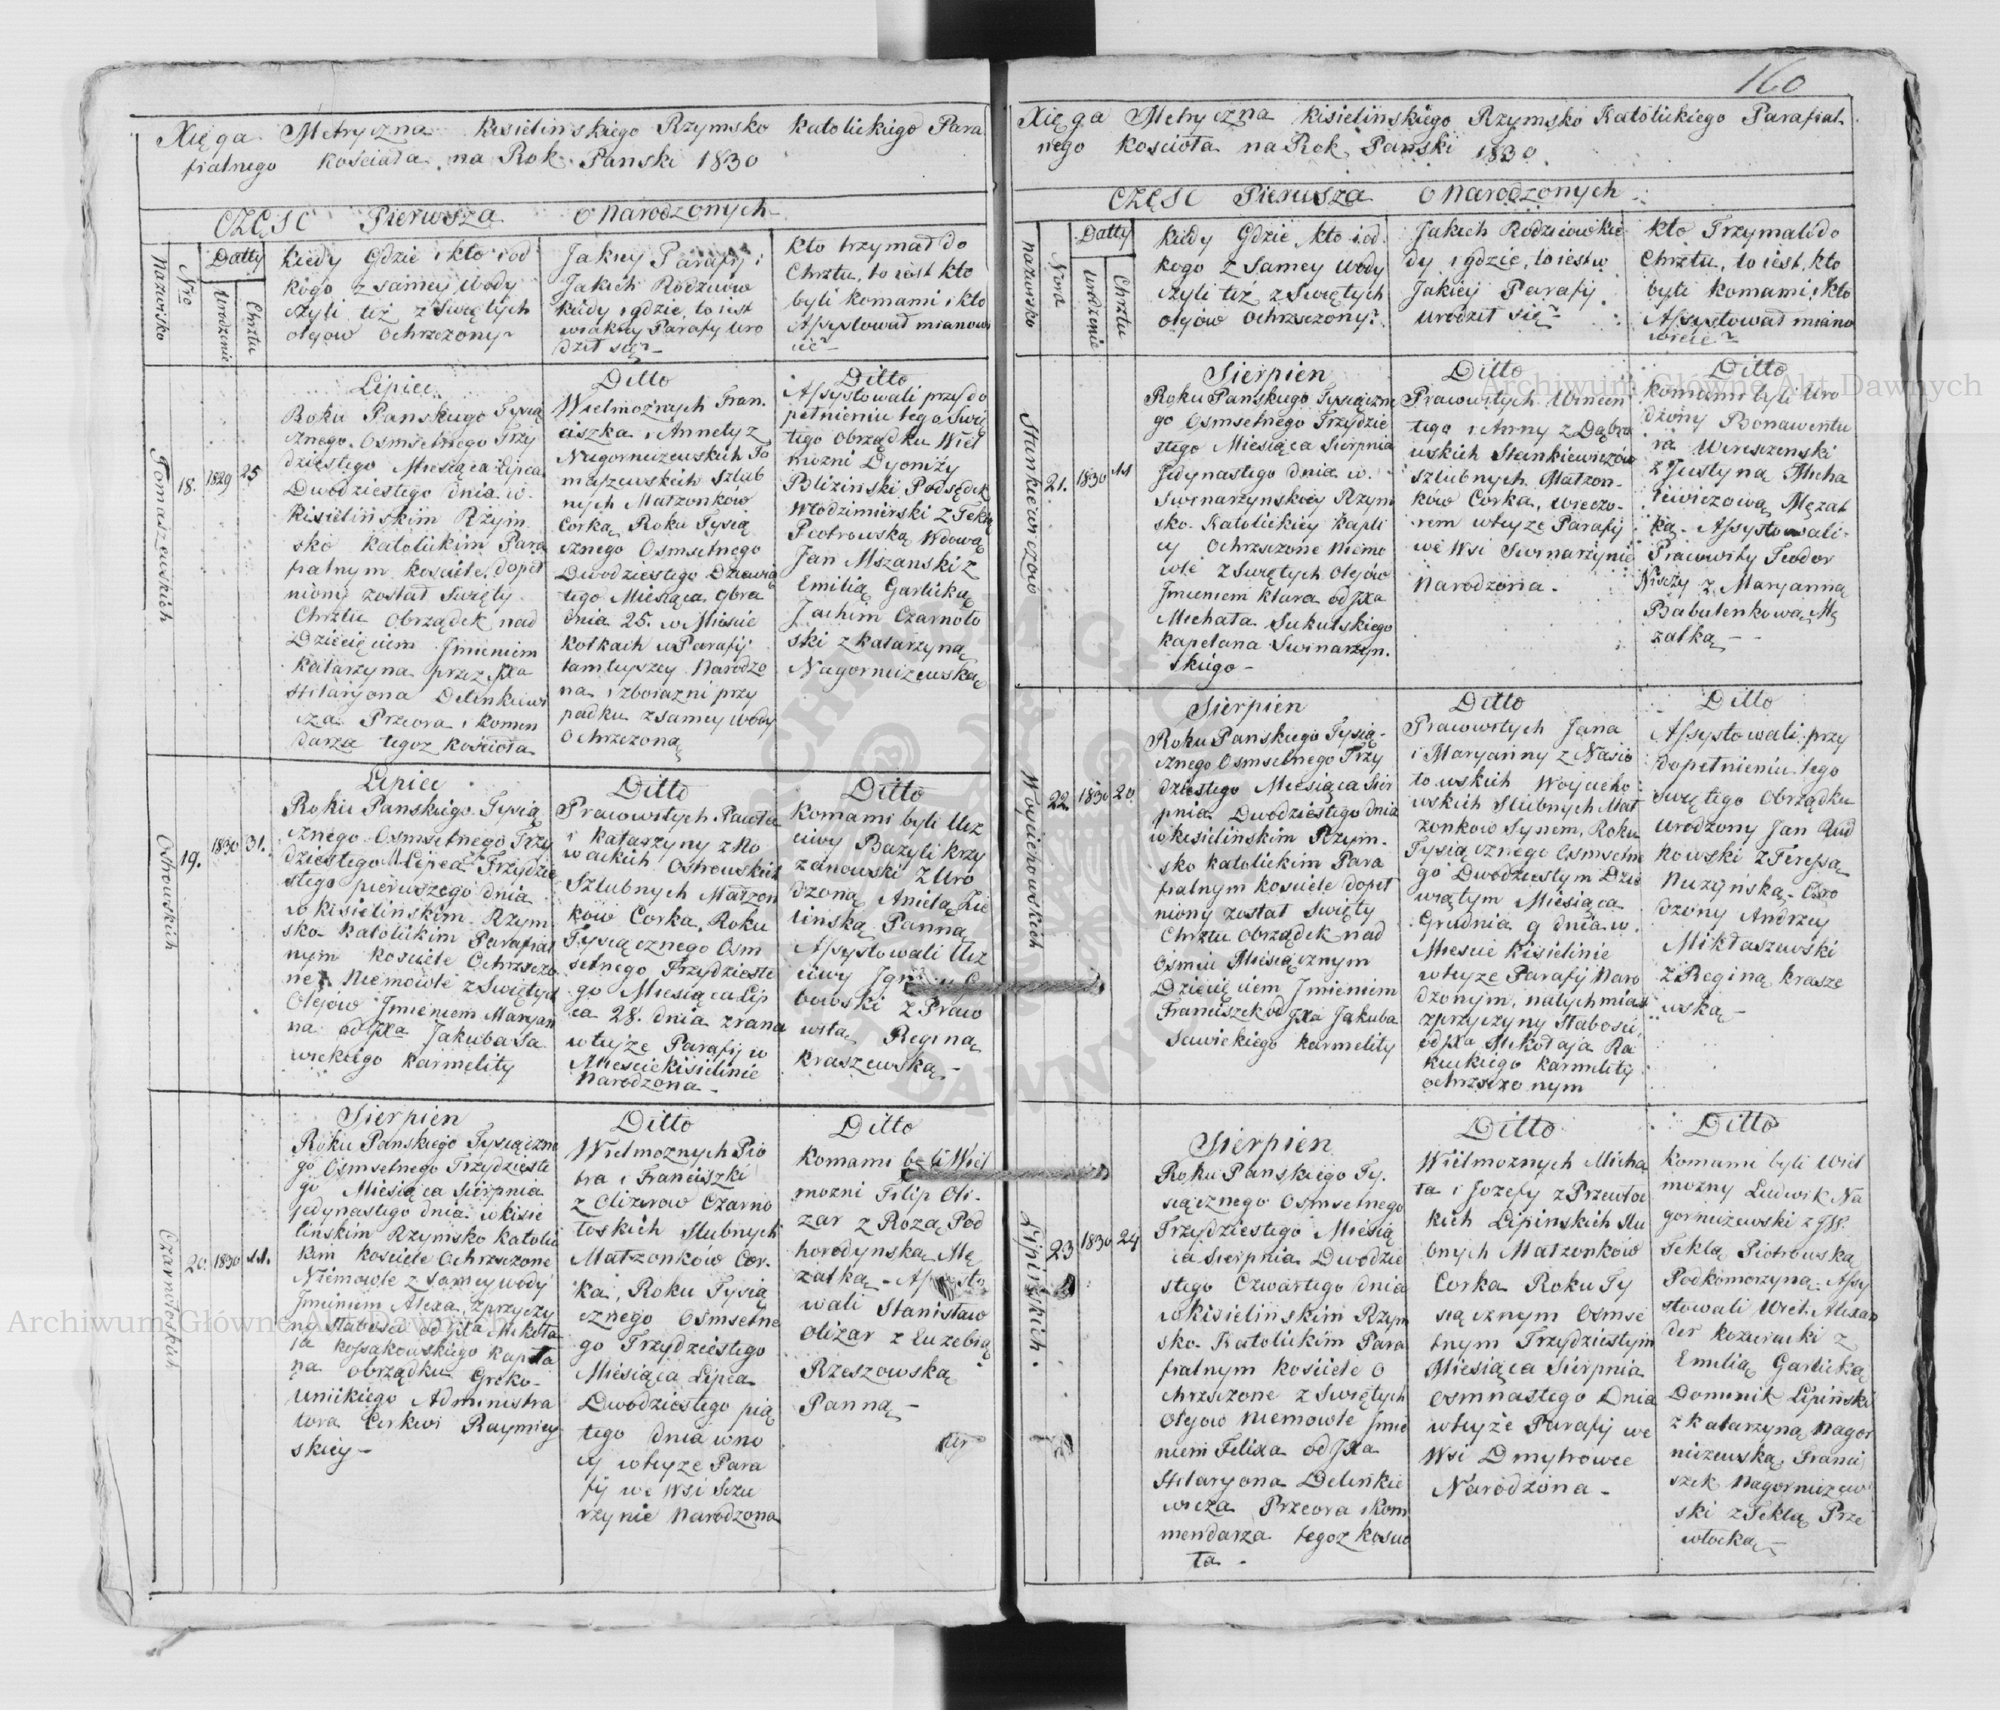 160
Xięga Metryczna Kisielinskiego Rzymsko Katolickiego Para
fialnego Kościoła na Rok Panski 1830
CZĘSC Pierwsza o Narodzonych
Nazwisko
Nro
Datty
Urodzenie
Chrztu
Kiedy Gdzie i kto i od
kogo z samey Wody
czyli też z Swiętych
olejow ochrzczony
Jakiey Parafij i
Jakich Rodzicow
kiedy i gdzie, to iest
w iakiey Parafij Uro
dził się?
Kto trzymał do
Chrztu, to iest kto
byli Komami i kto
Assystował mianowi
cie?
Tomaszewskich
18.
1829
25
Lipiec
Roku Panskiego Tysią
cznego Osmsetnego Trzy
dziestego Miesiąca Lipca
Dwudziestego dnia w
Kisielińskim Rzym
sko Katolickim Para
fialnym Kościele, dopeł
niony został Swięty
Chrztu Obrządek nad
Dziecięciem Jmieniem
Katarzyna przez Jxa
Hilaryona Delenkiewi
cza Przeora i Komen
darza tegoz Kościoła
Ditto
Wielmożnych Fran
ciszka i Annety z
Nagorniczewskich To
maszewskich Szlub
nych Małzonkow
Corka, Roku Tysią
cznego Osmsetnego
Dwudziestego Dziewią
tego Miesiąca 9bra
dnia 25. w Miescie
Kołkach w Parafij
tamtuyszey Narodzo
na i z boiazni przy
padku z samey Wody
ochrzczona
Ditto
Assystowali przy do
pełnieniu tego Swię
tego Obrządku Wiel
mozni Dyonizy
Blizinski Podsędek
Włodzimirski z Teklą
Piotrowską Wdową
Jan Mszanski z
Emilią Garlicką
Joachim Czarnoło
ski z Katarzyną
Nagorniczewską
Ostrowskich
19.
1830
31.
Lipiec
Roku Panskiego Tysią
cznego Osmsetnego Trzy
dziestego Lipca Trzydzie
stego pierwszego dnia
w Kisielinskim Rzym
sko Katolickim Parafial
nym Kościele Ochrzczo
ne Niemowle z Swiętych
Olejow Jmieniem Maryan
na od Jxa Jakuba Sa
wickiego Karmelity
Ditto
Pracowitych Pawła
i Katarzyny z No
wackich Ostrowskich
Szlubnych Małzon
kow Corka, Roku
Tysiącznego Osm
setnego Trzydzieste
go Miesiąca Lip
ca 28. dnia zrana
w teyze Parafij w
Miescie Kisielinie
Narodzona
Ditto
Komami byli Ucz
ciwy Bazyli Krzy
zanowski z Uro
dzoną Anielą Zie
linską Panną
Assystowali Ucz
ciwy
bowski z Praco
witą Reginą
Kraszewską
Czarnołoskich
20.
1830
11.
Sierpien
Roku Panskiego Tysiączne
go Osmsetnego Trzydzieste
go Miesiąca Sierpnia
Jedynastego dnia w Kisie
linskim Rzymsko Katolic
kim Kościele Ochrzczone
Niemowle z samey wody
Jmieniem Alexa, z przyczy
ny słabosci od Jxa Mikoła
ja Kossakowskiego Kapła
na obrządku Greko
Unickiego Administra
tora Cerkwi Raymiey
skiey
Ditto
Wielmoznych Pio
tra i Franciszki
z Olizarow Czarno
łoskich Slubnych
Małzonków Cor
ka, Roku Tysią
cznego Osmsetne
go Trzydziestego
Miesiąca Lipca
Dwudziestego pią
tego dnia w no
cy w teyze Para
fij we Wsi Szu
rzynie Narodzona
Ditto
Komami byli Wiel
mozni Filip Oli
zar z Rozą Pod
horodynską Mę
zatką Assysto
wali Stanisław
Olizar z Euzebią
Rzeszowską
Panną
Xięga Metryczna Kisielinskiego Rzymsko Katolickiego Parafial
nego Kościoła na Rok Panski 1830.
CZĘSC Pierwsza o Narodzonych
Nazwisko
Nora
Datty
Urodzenie
Chrztu
Kiedy Gdzie kto i od
kogo z samey Wody
czyli też z Swiętych
olejów ochrzczony?
Jakich Rodzicow kie
dy i gdzie, to iest w
Jakiey Parafij
urodził się?
Kto Trzymali do
Chrztu, to iest, kto
byli Komami i kto
Assystował miano
wicie?
Stankiewiczowo
21.
1830
11
Sierpien
Roku Panskiego Tysiączne
go Osmsetnego Trzydzie
stego Miesiąca Sierpnia
Jedynastego dnia w
Swinarzynskiey Rzym
sko Katolickiey Kapli
cy Ochrzczone Niemo
wle z Swiętych olejów
Jmieniem Klara od Jxa
Michała Sukulskiego
Kapelana Swinarzyn
skiego
Ditto
Pracowitych Wincen
tego i Anny z Dąbro
wskich Stankiewiczów
szlubnych Małzon
ków Corka, wieczo
rem w teyze Parafij
we Wsi Swinarzynie
Narodzona.
Ditto
Komami byli Uro
dzony Bonawentu
ra Wereszenski
z Justyną Micha
lewiczową Męzat
ką. Assystowali
Pracowity Teodor
Niszy z Maryanną
Babulenkową Mę
zatką
Woyciechowskich
22.
1830
20
Sierpien
Roku Panskiego Tysią
cznego Osmsetnego Trzy
dziestego Miesiąca Sier
pnia Dwudziestego dnia
w Kisielinskim Rzym
sko Katolickim Para
fialnym Kościele dopeł
niony został Swięty
Chrztu Obrządek nad
Osmio Miesiącznym
Dziecięciem Jmieniem
Franciszek od Jxa Jakuba
Sawickiego Karmelity
Ditto
Pracowitych Jana
i Maryanny z Nasio
towskich Woyciecho
wskich Slubnych Mał
zonkow Synem, Roku
Tysiącznego Osmsetne
go Dwudziestym Dzie
więtym Miesiąca
Grudnia 9 dnia w
Miescie Kisielinie
w teyze Parafij Naro
dzonym, natychmiast
z przyczyny słabosci
od Jxa Mikołaja Ra
kuckiego Karmelity
ochrzczonym
Ditto
Assystowali przy
Dopełnieniu tego
Swiętego Obrządku
Urodzony Jan Rud
kowski z Teressą
Nuzynską Uro
dzony Andrzey
Mikłaszewski
z Reginą Krasze
wską
Lipinskich.
23
1830
24
Sierpien
Roku Panskiego Ty
siącznego Osmsetnego
Trzydziestego Miesią
ca Sierpnia Dwudzie
stego Czwartego dnia
w Kisielinskim Rzym
sko Katolickim Para
fialnym Kościele O
chrzczone z Swiętych
Olejow Niemowle Jmie
niem Felixa od Jxa
Hilaryona Delinkie
wicza Przeora i Kom
mendarza tegoz Koscio
ła.
Ditto
Wielmoznych Micha
ła i Jozefy z Przewłoc
kich Lipinskich Slu
bnych Małzonków
Corka Roku Ty
siącznym Osmse
tnym Trzydziestym
Miesiąca Sierpnia
Osmnastego Dnia
w teyże Parafij we
Wsi Dmytrowce
Narodzona
Ditto
Komami byli Wiel
mozny Ludwik Na
gorniczewski z JW.
Teklą Piotrowską
Podkomorzyną. Assy
stowali Wiel. Alexan
der Kozieracki z
Emilią Garlicką
Dominik Lipiński
z Katarzyną Nagor
niczewską Franci
szek Nagorniczew
ski z Teklą Prze
włocką
Archiwum Główne Akt Dawnych
Archiwum Główne Akt Dawnych